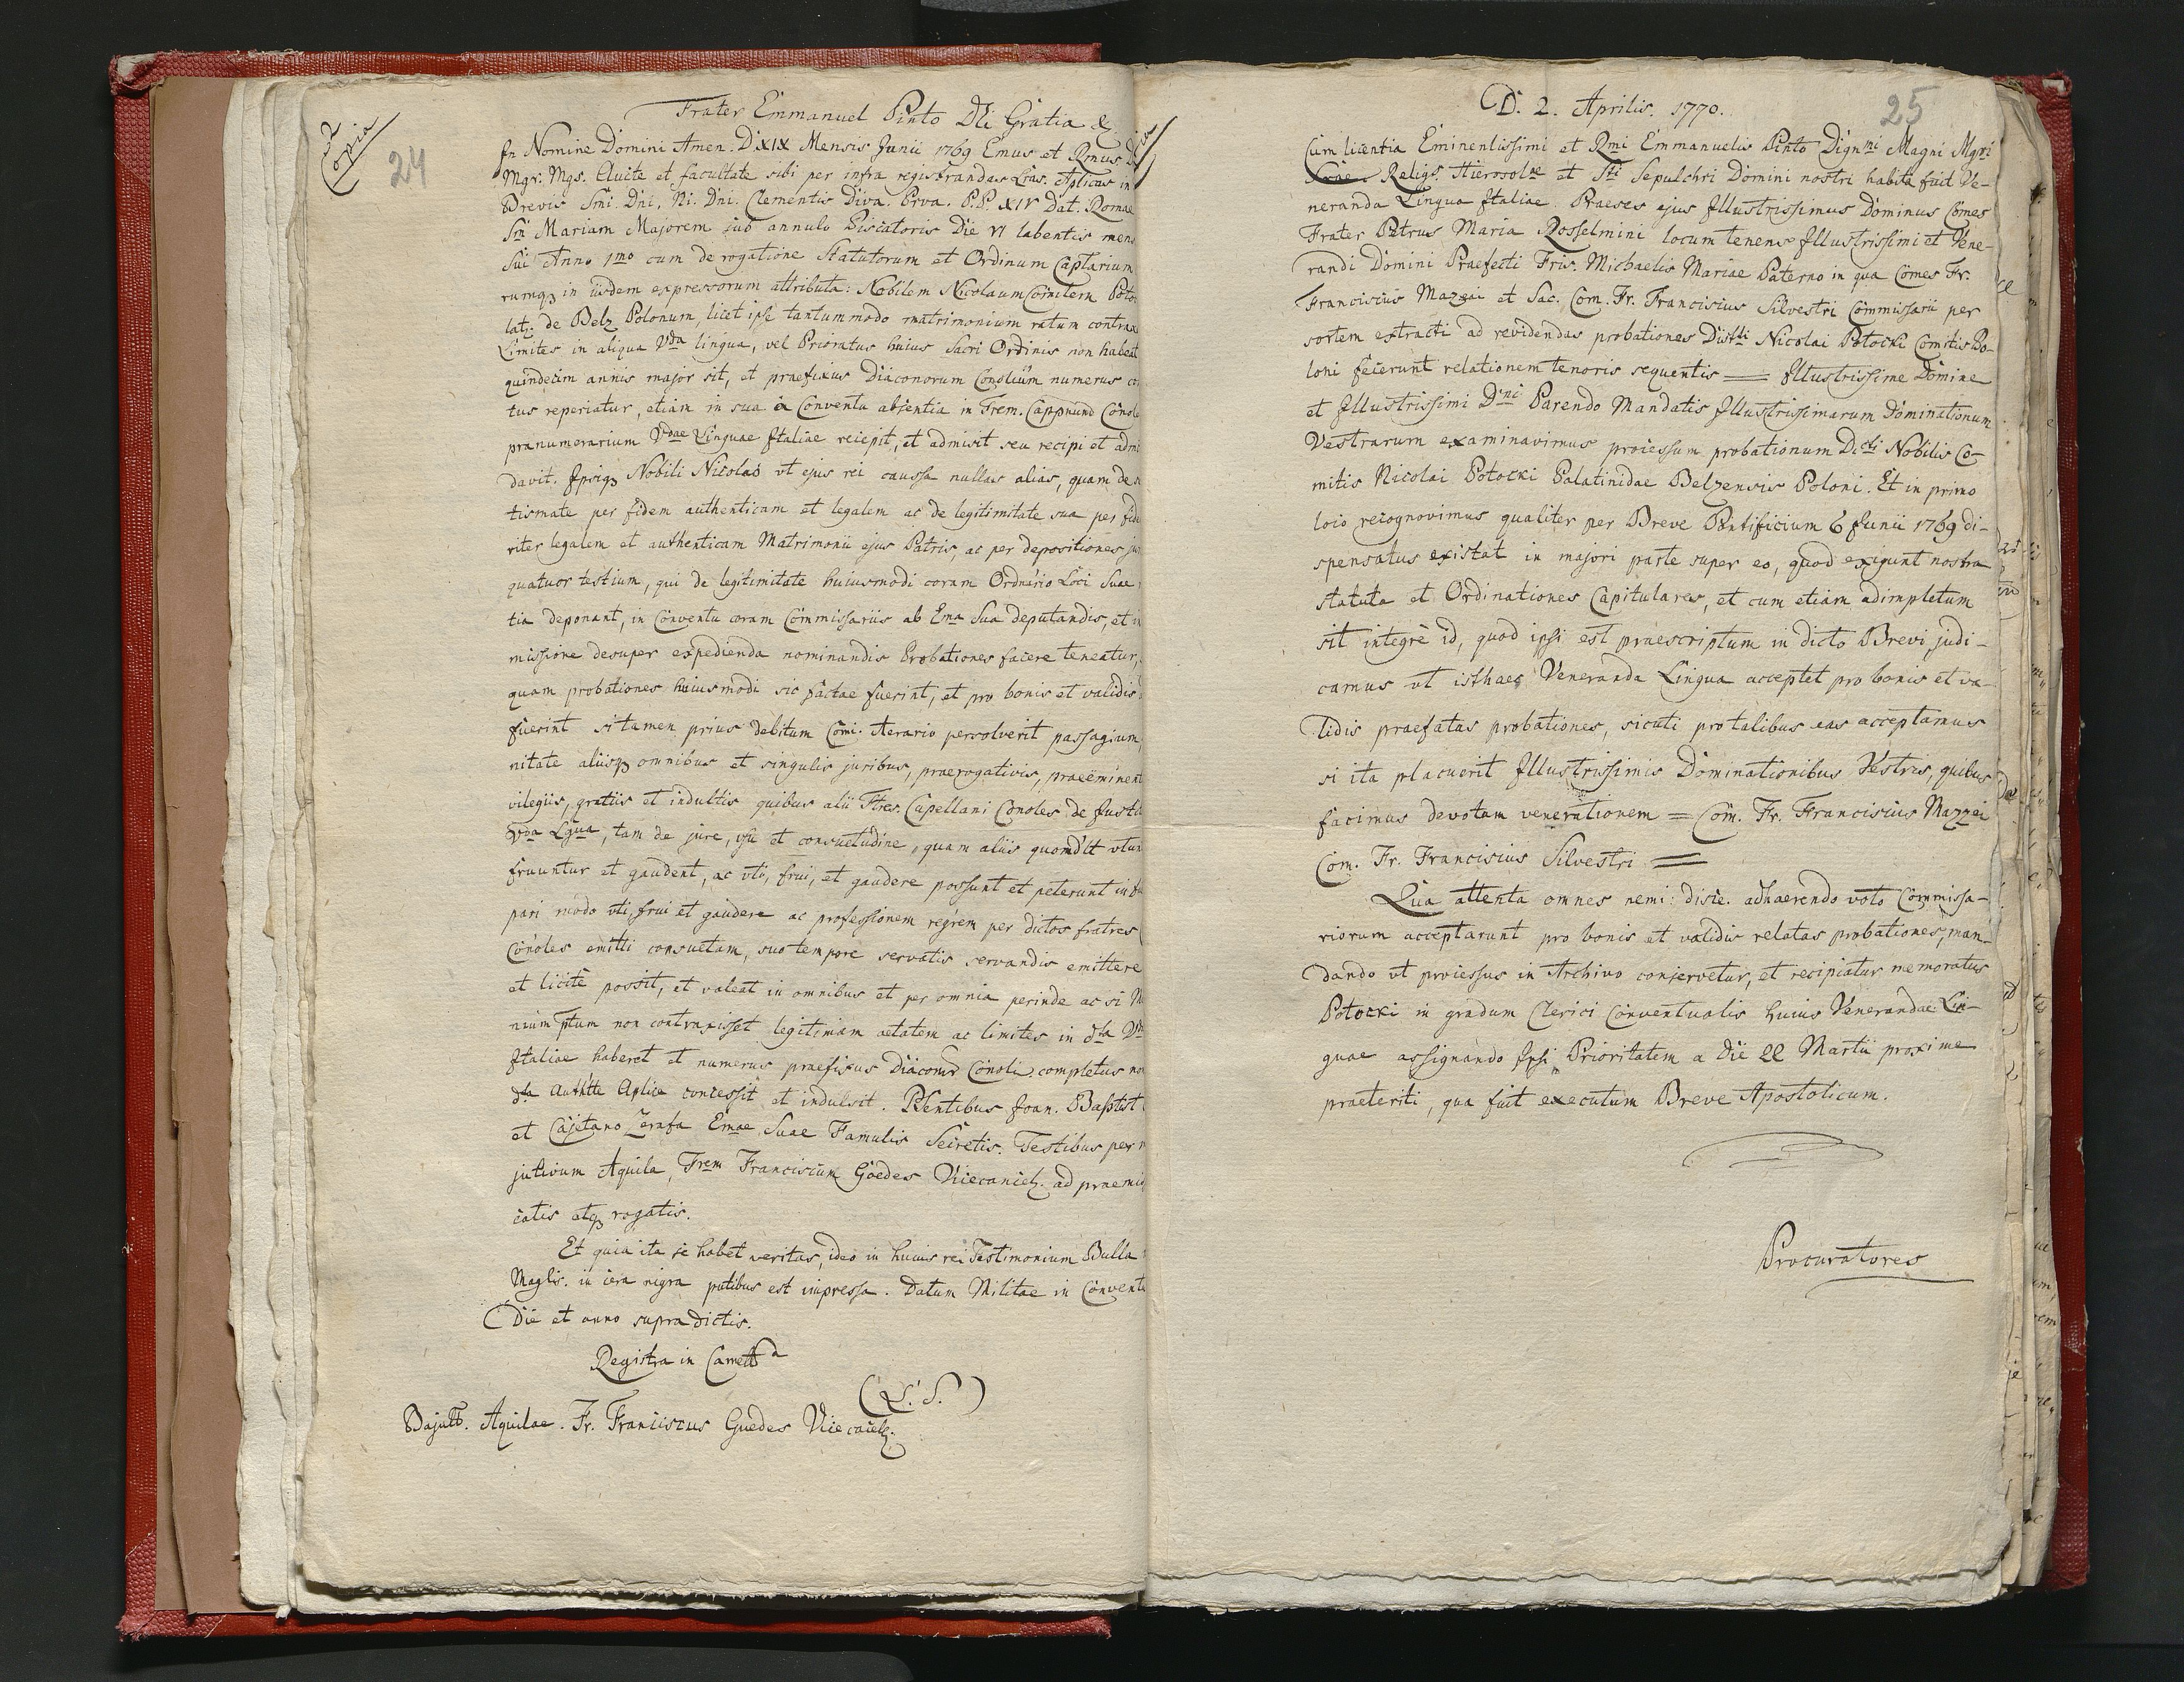 Copia
24
Frater Emmanuel Pinto Dei Gratia &
In Nomine Domini Amen. D. XIX Mensis Junii 1769 Emus et Rmus
Mgr. Mgs. et facultate sibi per infra registrandas Lras. Aplicas in
Brevis Smi. Dni. Ni. Dni. Clementis Diva. Prva. P.P. XIV Dat. Romae
Sm Mariam Majorem sub annulo Piscatoris Die VI labentis mens
Sui Anno 1mo cum derogatione Statutorum et Ordinum Caplarium
rumq in iisdem expressorum attributa: Nobilem Nicolaum Comitem Poto
lat: de Belz Polonum, licet ipse tantummodo matrimonium ratum contrax
Limites in aliqua Vda lingua, vel Prioratus huius Sacri Ordinis non habeat
quindecim annis major sit, et praefixus Diaconorum numerus co
tus reperiatur, etiam in sua a Conventu absentia in Frem. Cappnum Conole
pranumerarium Vdae Linguae Italiae recepit, et admisit seu recipi et admi
davit. Ipsiq Nobili Nicolao ut ejus rei caussa nullas alias, quam de
tismate per fidem authenticam et legalem ac de legitimitate sua per fide
riter legalem et authenticam Matrimonii ejus Patris, ac per depositiones ju
quatuor testium, qui de legitimitate huiusmodi coram Ordnario Loci Suae
tia deponant, in Conventu coram Commissariis ab Ema Sua deputandis, et in
missione desuper expedienda nominandis Probationes facere teneatur,
quam probationes huiusmodi sic factae fuerint, et pro bonis et validis
fuerint si tamen prius debitum Comi. Aerario persolverit passagium,
nitate aliisq omnibus et singulis juribus, praerogativis, praeëminent
vilegiis, gratiis et indultis quibus alii Ftres. Capellani Conoles de Justi
Vda Lgua, tam de jure, usu et consuetudine, quam aliis quomdlt utun
fruuntur et gaudent, ac uti, frui, et gaudere possunt et peterunt in fu
pari modo uti frui et gaudere ac professionem regrem per dictos fratres
Conoles emitti consuetam, suo tempore servatis servandis emittere
et licitè possit, et valeat in omnibus et per omnia perinde ac si M
nium ptum non contraxisset legitimam aetatem ac limites in dta Vda
Italiae haberet et numerus praefixus Diacomr Conoli completus non
dta Authtte Aplica concessit et indulsit. Pdentibus Joan. Baptist
et Cajetano Zerafa Emae Suae Famulis Secretis. Testibus per
julivum Aquila, Frem Franciscum Goedes Vicecancel. ad praemis
catis atq rogatis.
Et quia ita se habet veritas, ideo in huius rei Testimonium Bulla
Maglis. in cera nigra ptibus est impressa. Datum Militae in Conventu
Die et anno supradictis.
Registra in
(L. S.)
Bajulb. Aquilae. Fr. Franciscus Guedes Vicecancel.
25
D. 2. Aprilis. 1770.
Cum licentia Eminentissimi et Rmi Emmanuelis Pinto Dignni Magni Mgri
Religs. Hierosolae et Sti Sepulchri Domini nostri habita fuit Ve-
neranda Lingua Italiae. Praeses ejus Illustrissimus Dominus Comes
Frater Petrus Maria Rosselmini locum tenens Illustrissimi et Vene-
randi Domini Praefecti Fris. Michaelis Mariae Paterno in qua Comes Fr.
Franciscus Mazzei et Sac. Com. Fr. Franciscus Silvestri Commissarii per
sortem extracti ad revidendas probationes Nicolai Potocki Comitis Po-
loni fecerunt relationem tenoris sequentis = Illustrissime Domine
et Illustrissimi Dni Parendo Mandatis Illustrissimarum Dominationum
Vestrarum examinavimus processum probationum Dicti Nobilis Co-
mitis Nicolai Potocki Palatinidae Belzensis Poloni. Et in primo
loco recognovimus qualiter per Breve Pontificium 6 Junii 1769 di-
spensatus existat in majori parte super eo, quod exigunt nostra
statuta et Ordinationes Capitulares, et cum etiam adimpletum
sit integrè id, quod ipsi est praescriptum in dicto Brevi, judi-
camus ut isthaec Veneranda Lingua acceptet pro bonis et va-
lidis praefatas probationes, sicuti pro talibus eas acceptamus
si ita placuerit Illustrissimis Dominationibus Vestris, quibus
facimus devotam venerationem = Com. Fr. Franciscus Mazzei
Com. Fr. Franciscus Silvestri =
Qua attenta omnes nemi: disce. adhaerendo voto Commissa-
riorum acceptarunt pro bonis et validis relatas probationes, man-
dando ut processus in Archivo conservetur, et recipiatur memoratus
Potocki in gradum Clerici Conventualis huius Venerandae Lin-
guae assignando Ipsi Prioritatem a die 22 Martii proxime
praeteriti, qua fuit executum Breve Apostolicum.
Procuratores